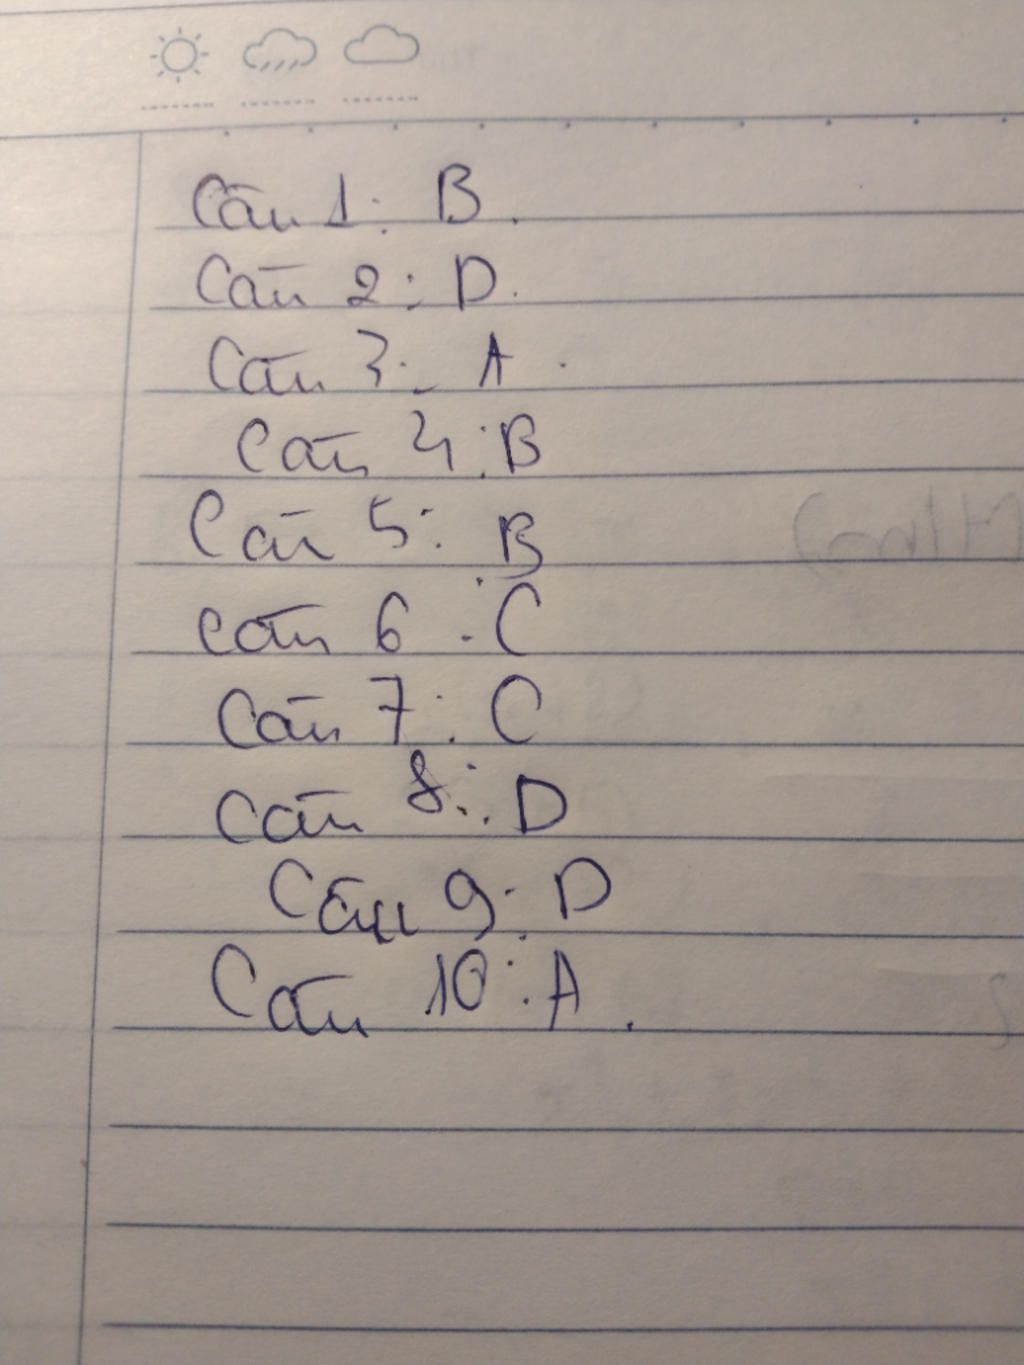 Câu 1: B.
Câu 2: D.
Câu 3: A.
Câu 4: B
Câu 5: B
Câu 6: C
Câu 7: C
Câu 8: D
Câu 9: D
Câu 10: A.